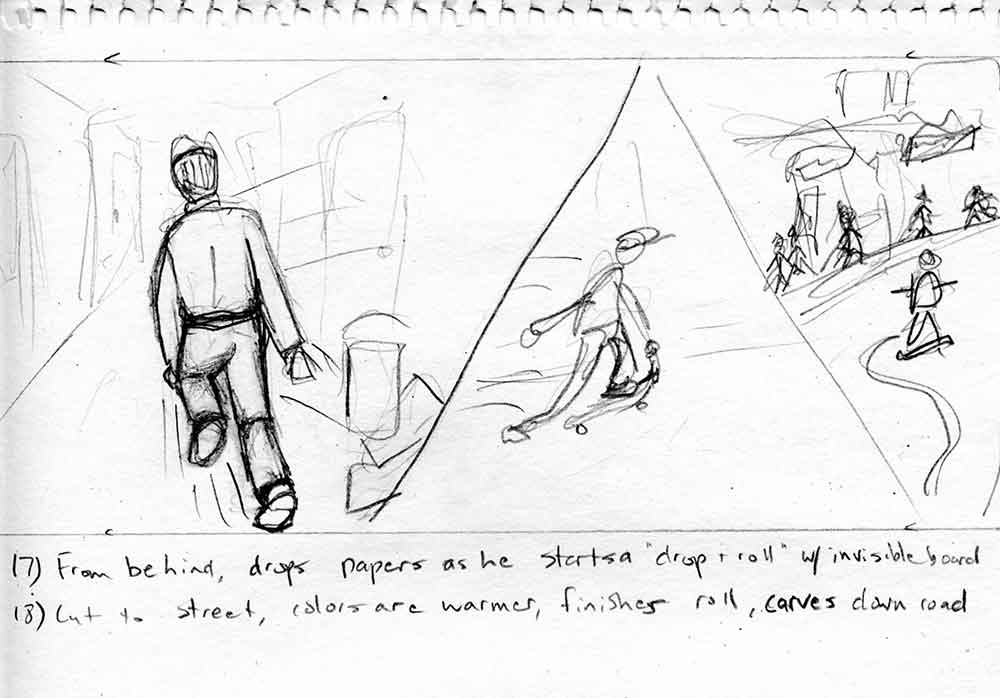 17) From behind, drops papers as he starts a "drop + roll" w/ invisible board
18) Cut to street, colors are warmer, finishes roll, carves down road